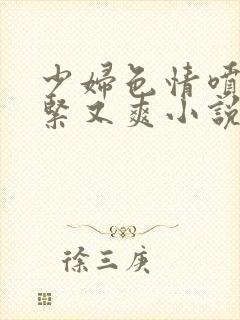 少婦色情噴
緊又爽小說
徐三庚